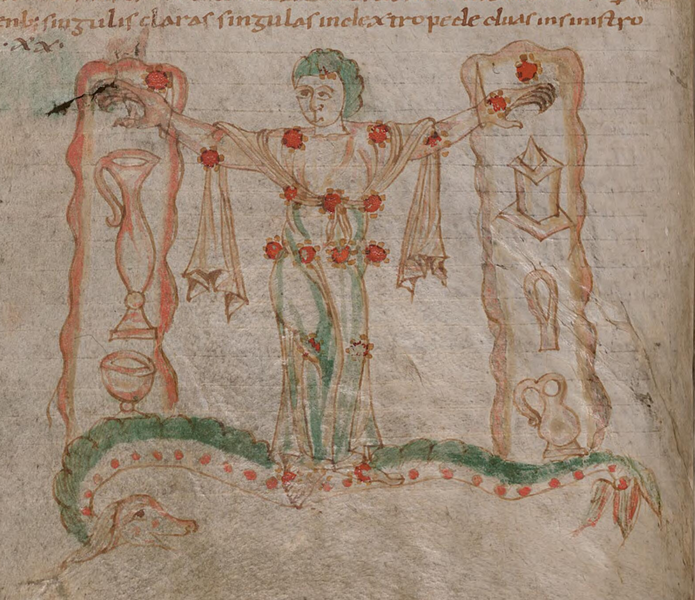 singulis claras singulas in dextro pede duas in sinistro
· xx ·